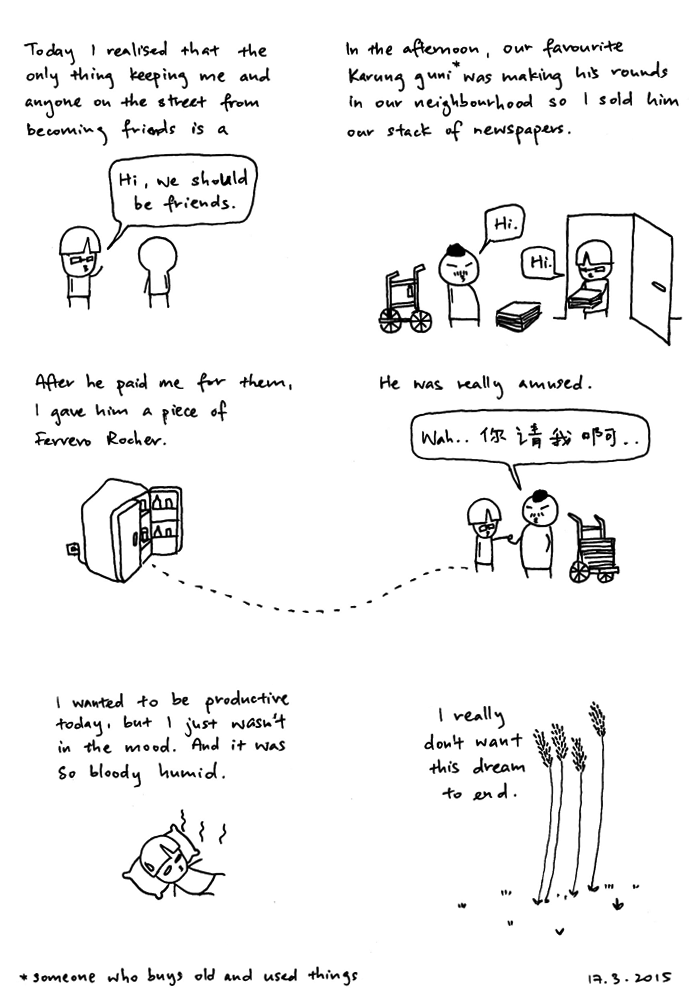 Today I realised that the
only thing keeping me and
anyone on the street from
becoming friends is a
Hi, we should
be friends.
In the afternoon, our favourite
Karung guni* was making his rounds
in our neighbourhood so I sold him
our stack of newspapers.
Hi.
Hi.
After he paid me for them,
I gave him a piece of
Ferrero Rocher.
He was really amused.
Wah.. 你 请 我 啊..
I wanted to be productive
today, but I just wasn't
in the mood. And it was
so bloody humid.
I really
don't want
this dream
to end.
*someone who buys old and used things
17.3.2015